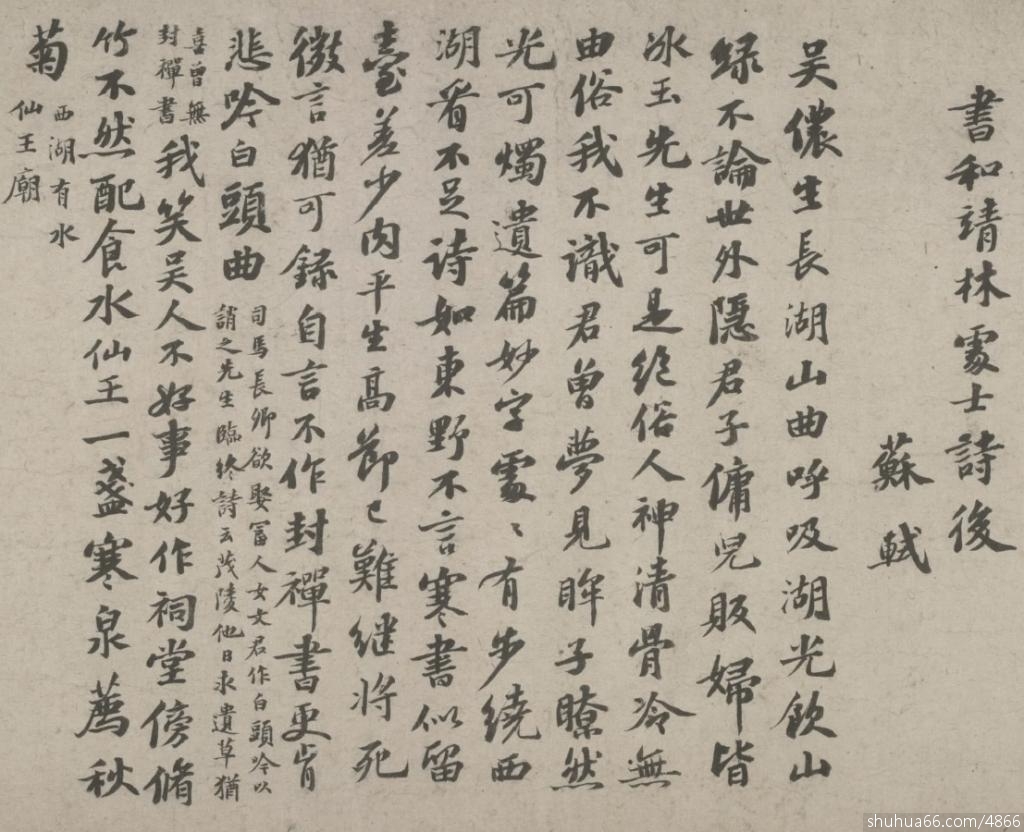 書和靖林處士詩後
蘇軾
吴儂生長湖山曲呼吸湖光飲山
緑不論世外隱君子傭兒販婦皆
冰玉先生可是絕俗人神清骨冷無
由俗我不識君曾夢見眸子瞭然
光可燭遺篇妙字處〻有步繞西
湖看不足詩如東野不言寒書似留
臺差少肉平生高節已難継将死
微言猶可録自言不作封禪書更肯
悲吟白頭曲
司馬長卿欲娶冨人女文君作白頭吟以
誚之先生臨終詩云茂陵他日求遺草猶
喜曾無
封禪書
我笑吴人不好事好作祠堂傍脩
竹不然配食水仙王一盞寒泉薦秋
菊
西湖有水
仙王廟
shuhua66.com/4866